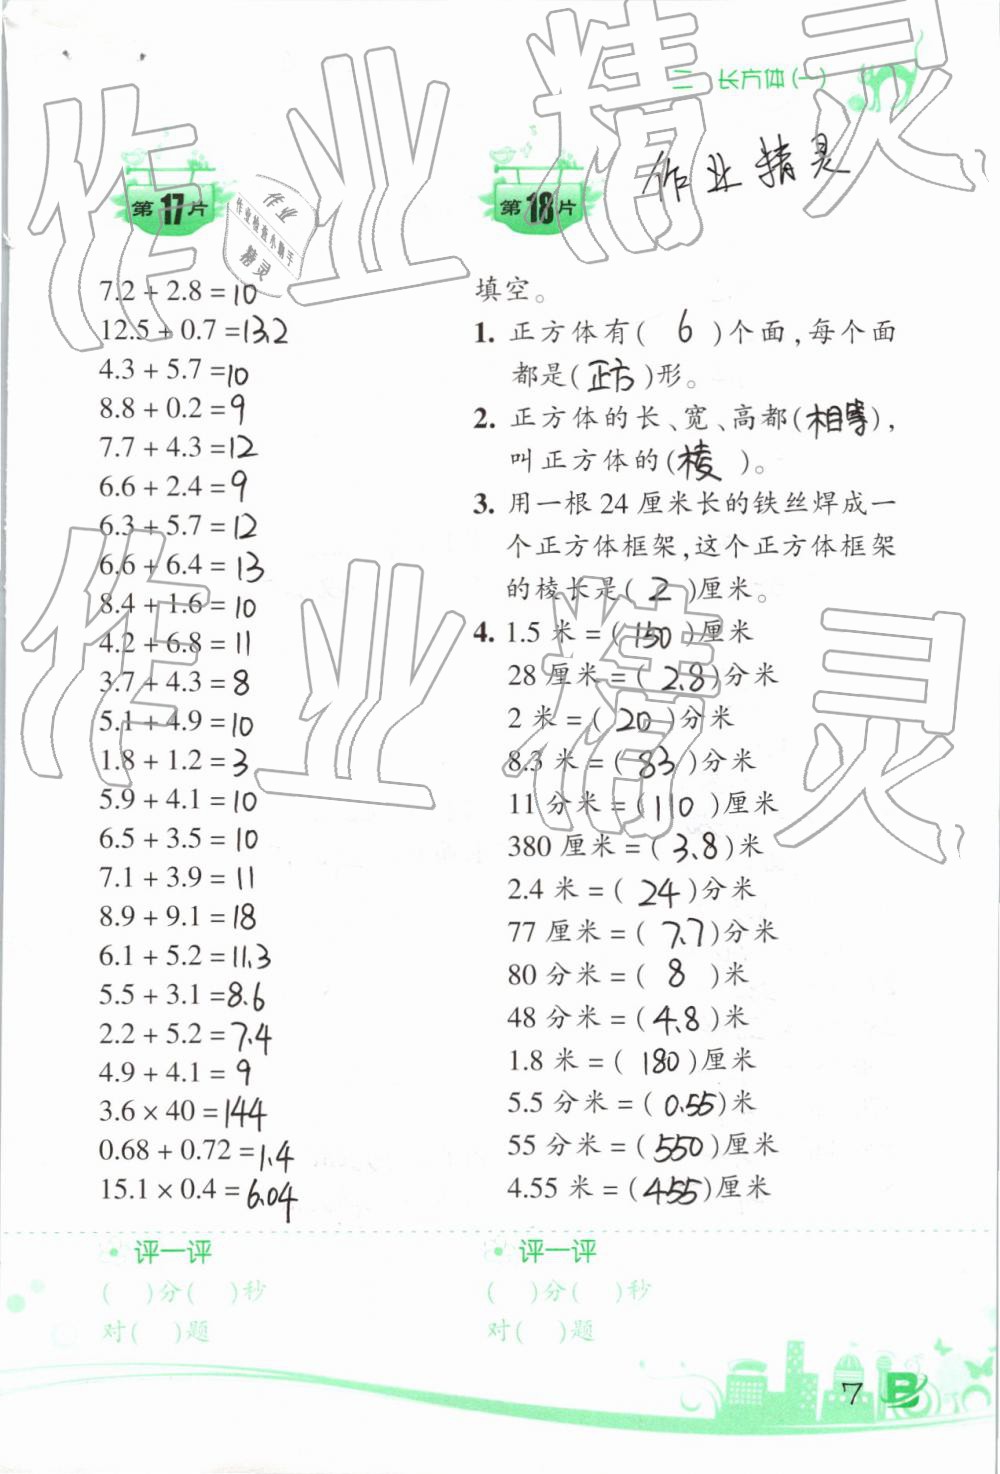 二 长方体(一)
作业精灵
第17片
7.2 + 2.8 = 10
12.5 + 0.7 = 13.2
4.3 + 5.7 = 10
8.8 + 0.2 = 9
7.7 + 4.3 = 12
6.6 + 2.4 = 9
6.3 + 5.7 = 12
6.6 + 6.4 = 13
8.4 + 1.6 = 10
4.2 + 6.8 = 11
3.7 + 4.3 = 8
5.1 + 4.9 = 10
1.8 + 1.2 = 3
5.9 + 4.1 = 10
6.5 + 3.5 = 10
7.1 + 3.9 = 11
8.9 + 9.1 = 18
6.1 + 5.2 = 11.3
5.5 + 3.1 = 8.6
2.2 + 5.2 = 7.4
4.9 + 4.1 = 9
3.6 × 40 = 144
0.68 + 0.72 = 1.4
15.1 × 0.4 = 6.04
评一评
( )分( )秒
对( )题
第18片
填空。
1. 正方体有( 6 )个面,每个面
都是(正方)形。
2. 正方体的长、宽、高都(相等),
叫正方体的(棱 )。
3. 用一根 24 厘米长的铁丝焊成一
个正方体框架,这个正方体框架
的棱长是( 2 )厘米。
4. 1.5 米 = ( 150 )厘米
28 厘米 = ( 2.8 )分米
2 米 = ( 20 )分米
8.3 米 = ( 83 )分米
11 分米 = ( 110 )厘米
380 厘米 = ( 3.8 )米
2.4 米 = ( 24 )分米
77 厘米 = ( 7.7 )分米
80 分米 = ( 8 )米
48 分米 = ( 4.8 )米
1.8 米 = ( 180 )厘米
5.5 分米 = ( 0.55 )米
55 分米 = ( 550 )厘米
4.55 米 = ( 455 )厘米
评一评
( )分( )秒
对( )题
7
作业精灵
作业精灵
作业
作业检查小助手
精灵